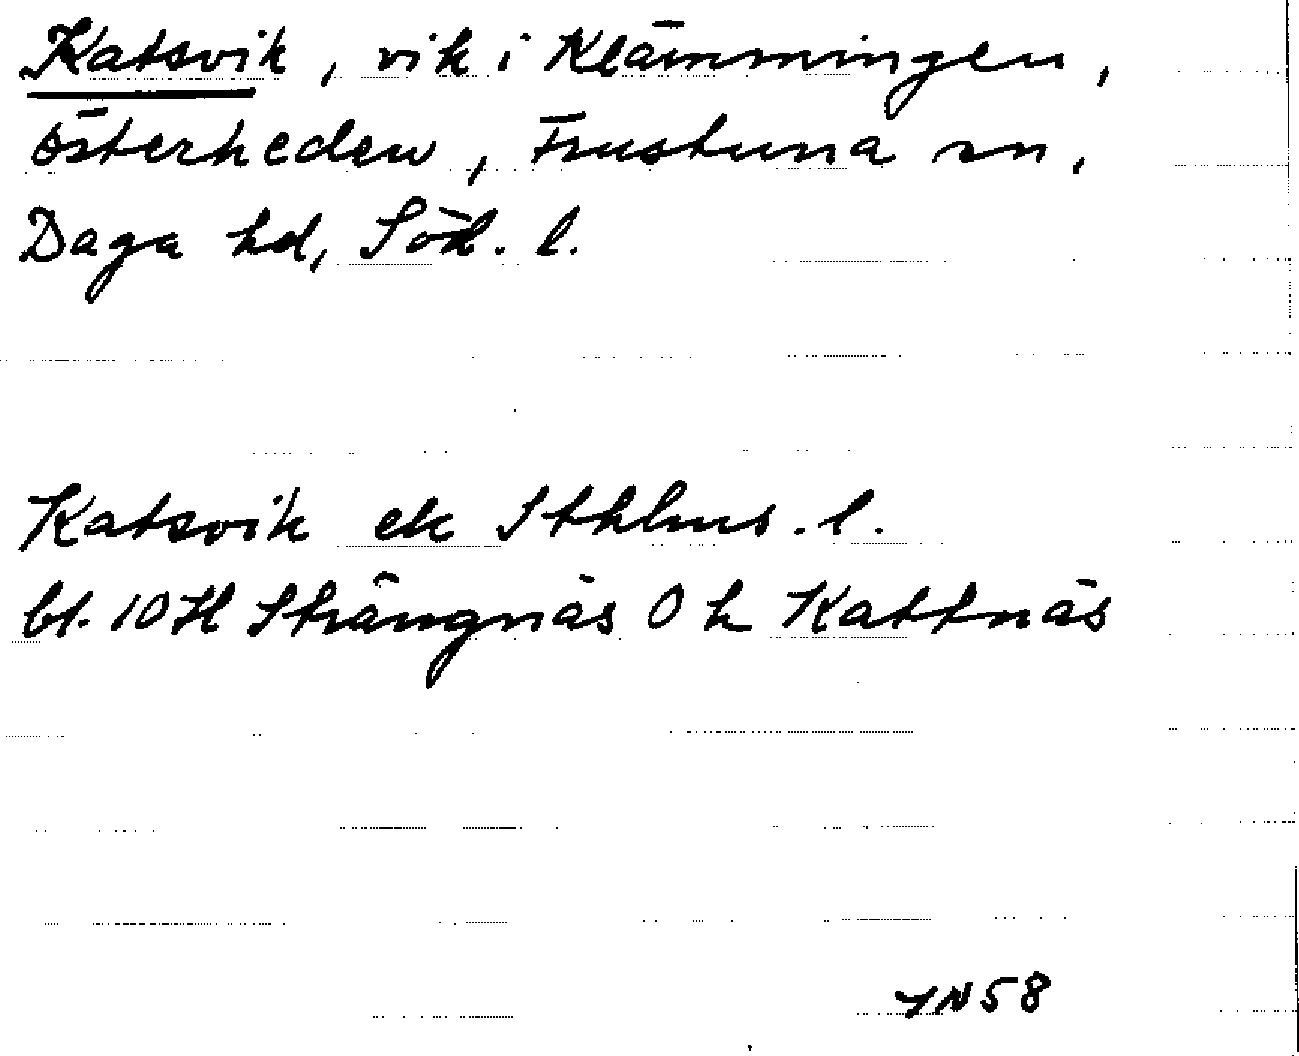 Katsvik, vik i Klämmingen,
Österheden, Frustuna sn,
Daga hd, Söd. l.
Katsvik ek Sthlms. l.
bl. 10H Strängnäs O h Kattnäs
YN58